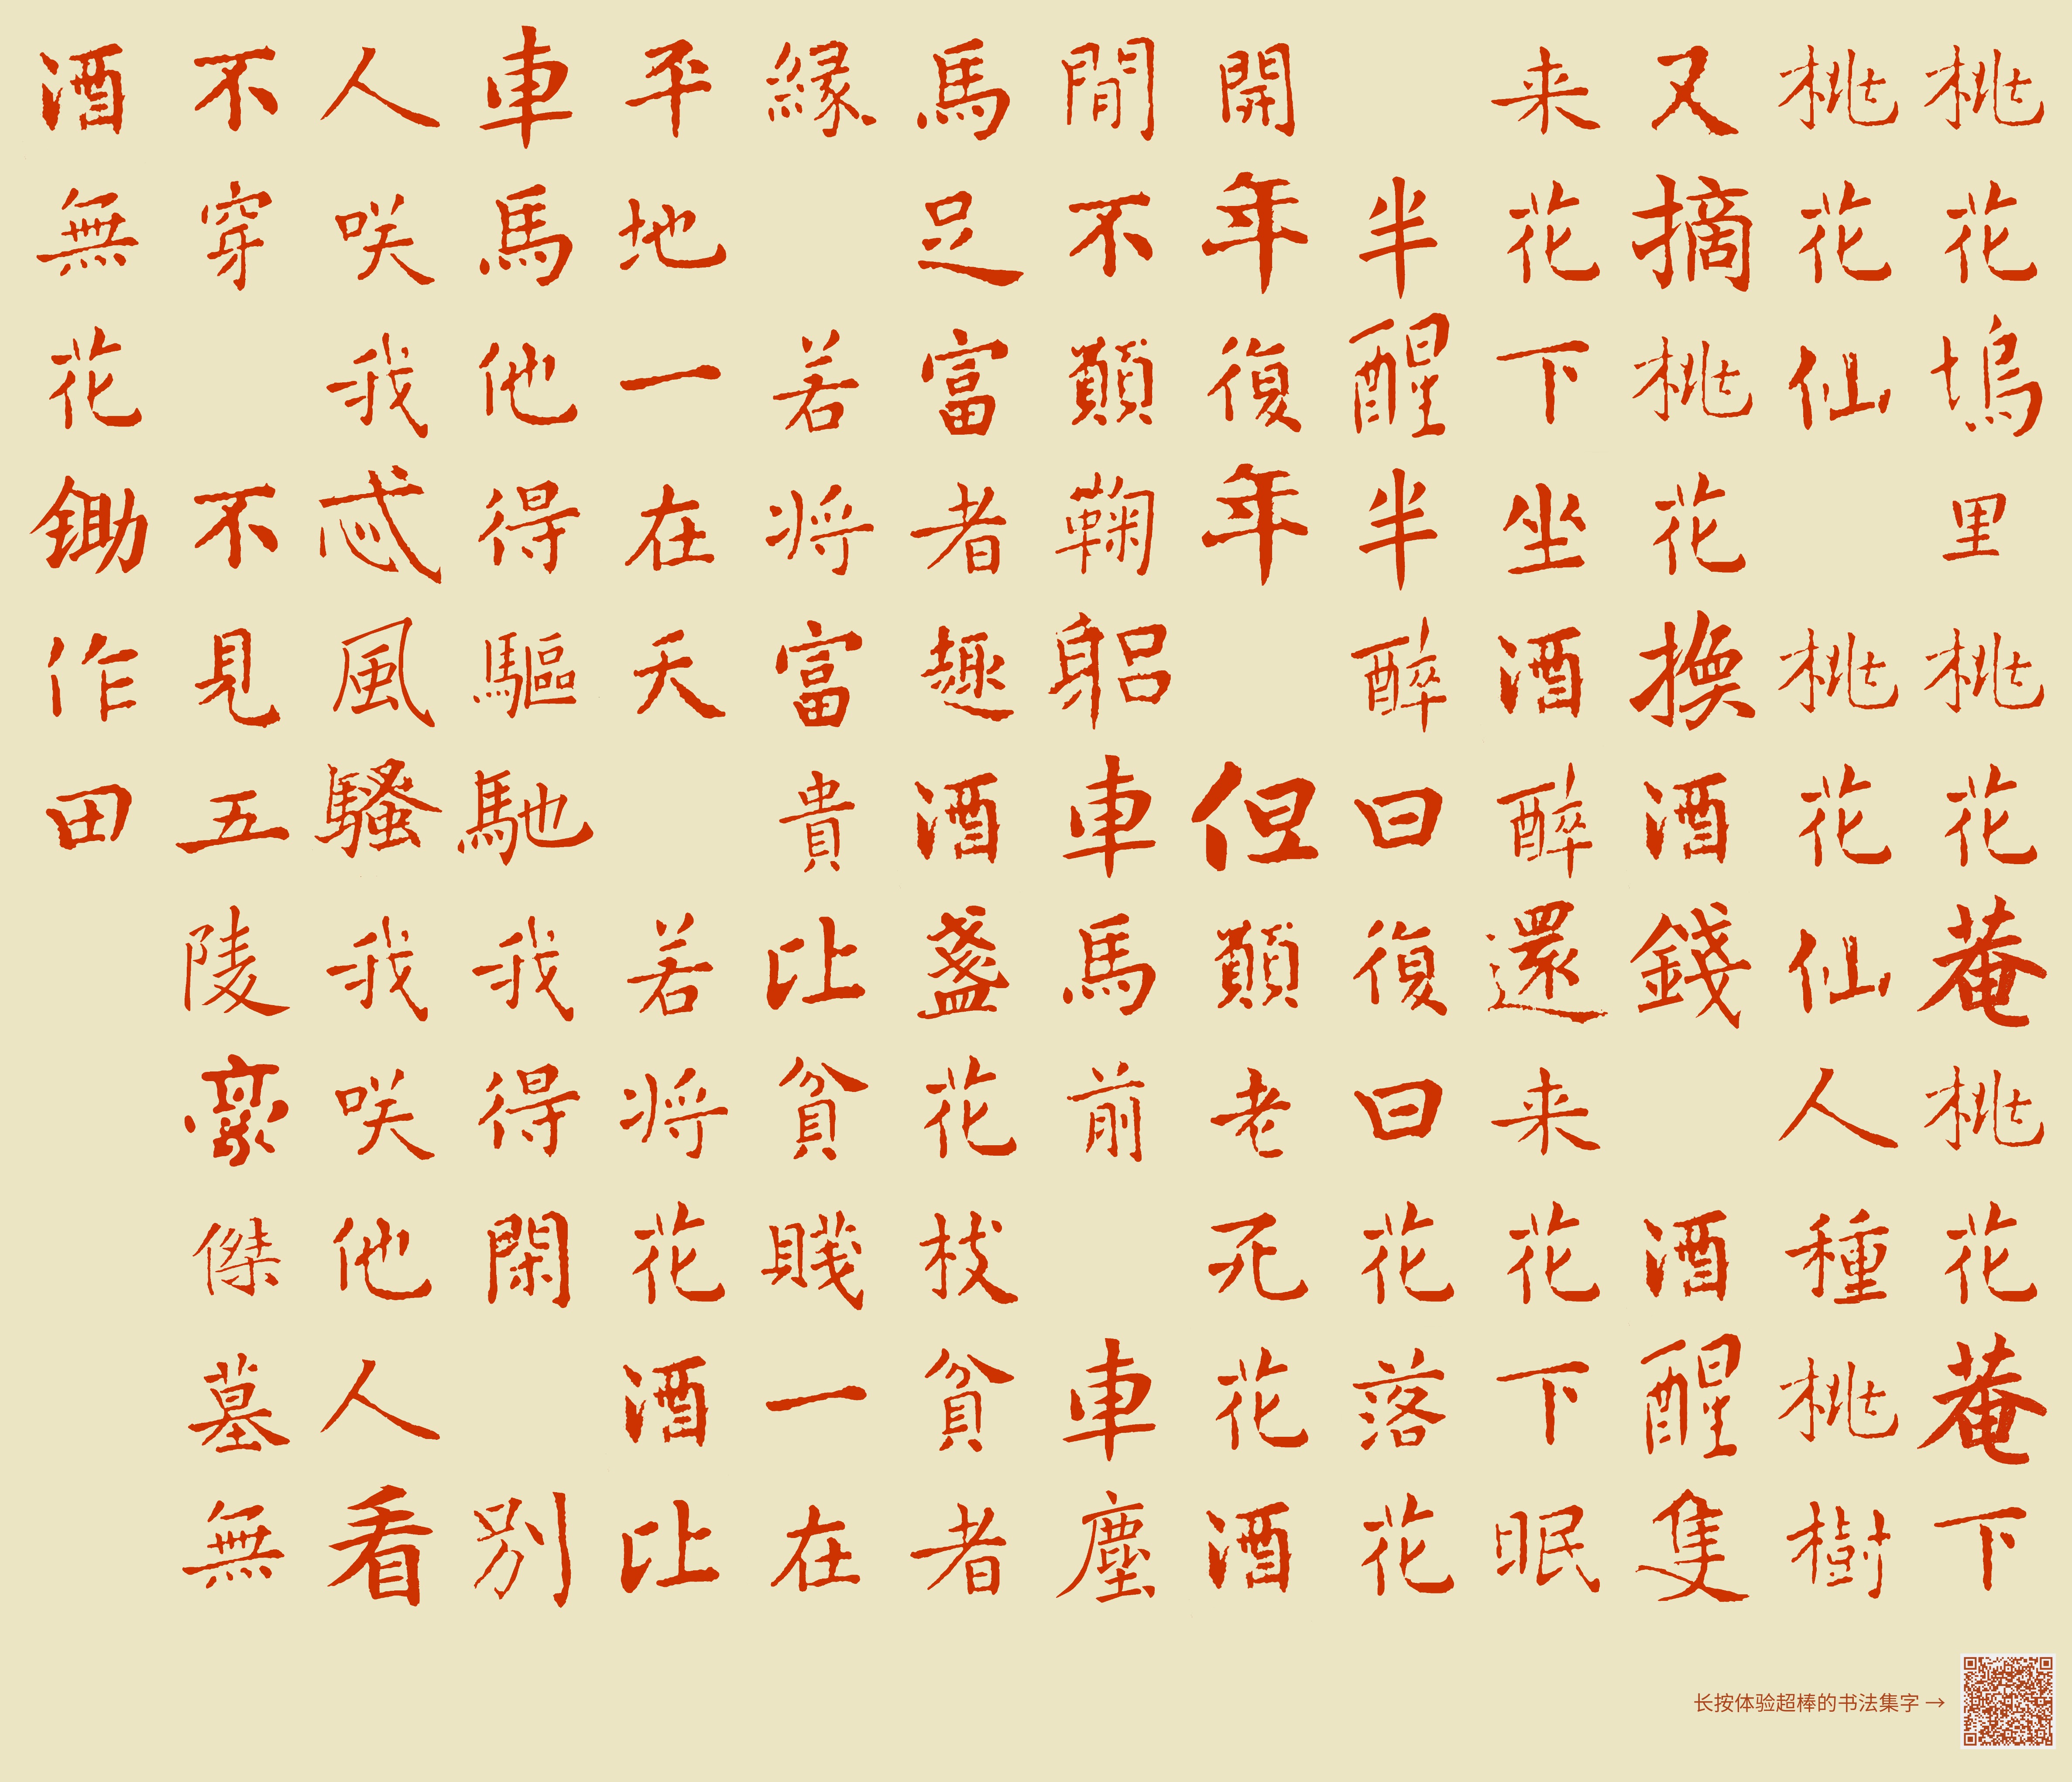 桃花塢里桃花菴桃花菴下
桃花仙 桃花仙人種桃樹
又摘桃花換酒錢 酒醒隻
来花下坐酒醉還来花下眠
半醒半醉日復日花落花
開年復年 但顛老死花酒
間不顛鞠躳車馬前 車塵
馬足富者趣酒盞花枝貧者
緣 若将富貴比貧賤一在
平地一在天 若将花酒比
車馬他得驅馳我得閑 别
人咲我忒風騷我咲他人看
不穿 不見五陵豪傑墓無
酒無花鋤作田
长按体验超棒的书法集字 →